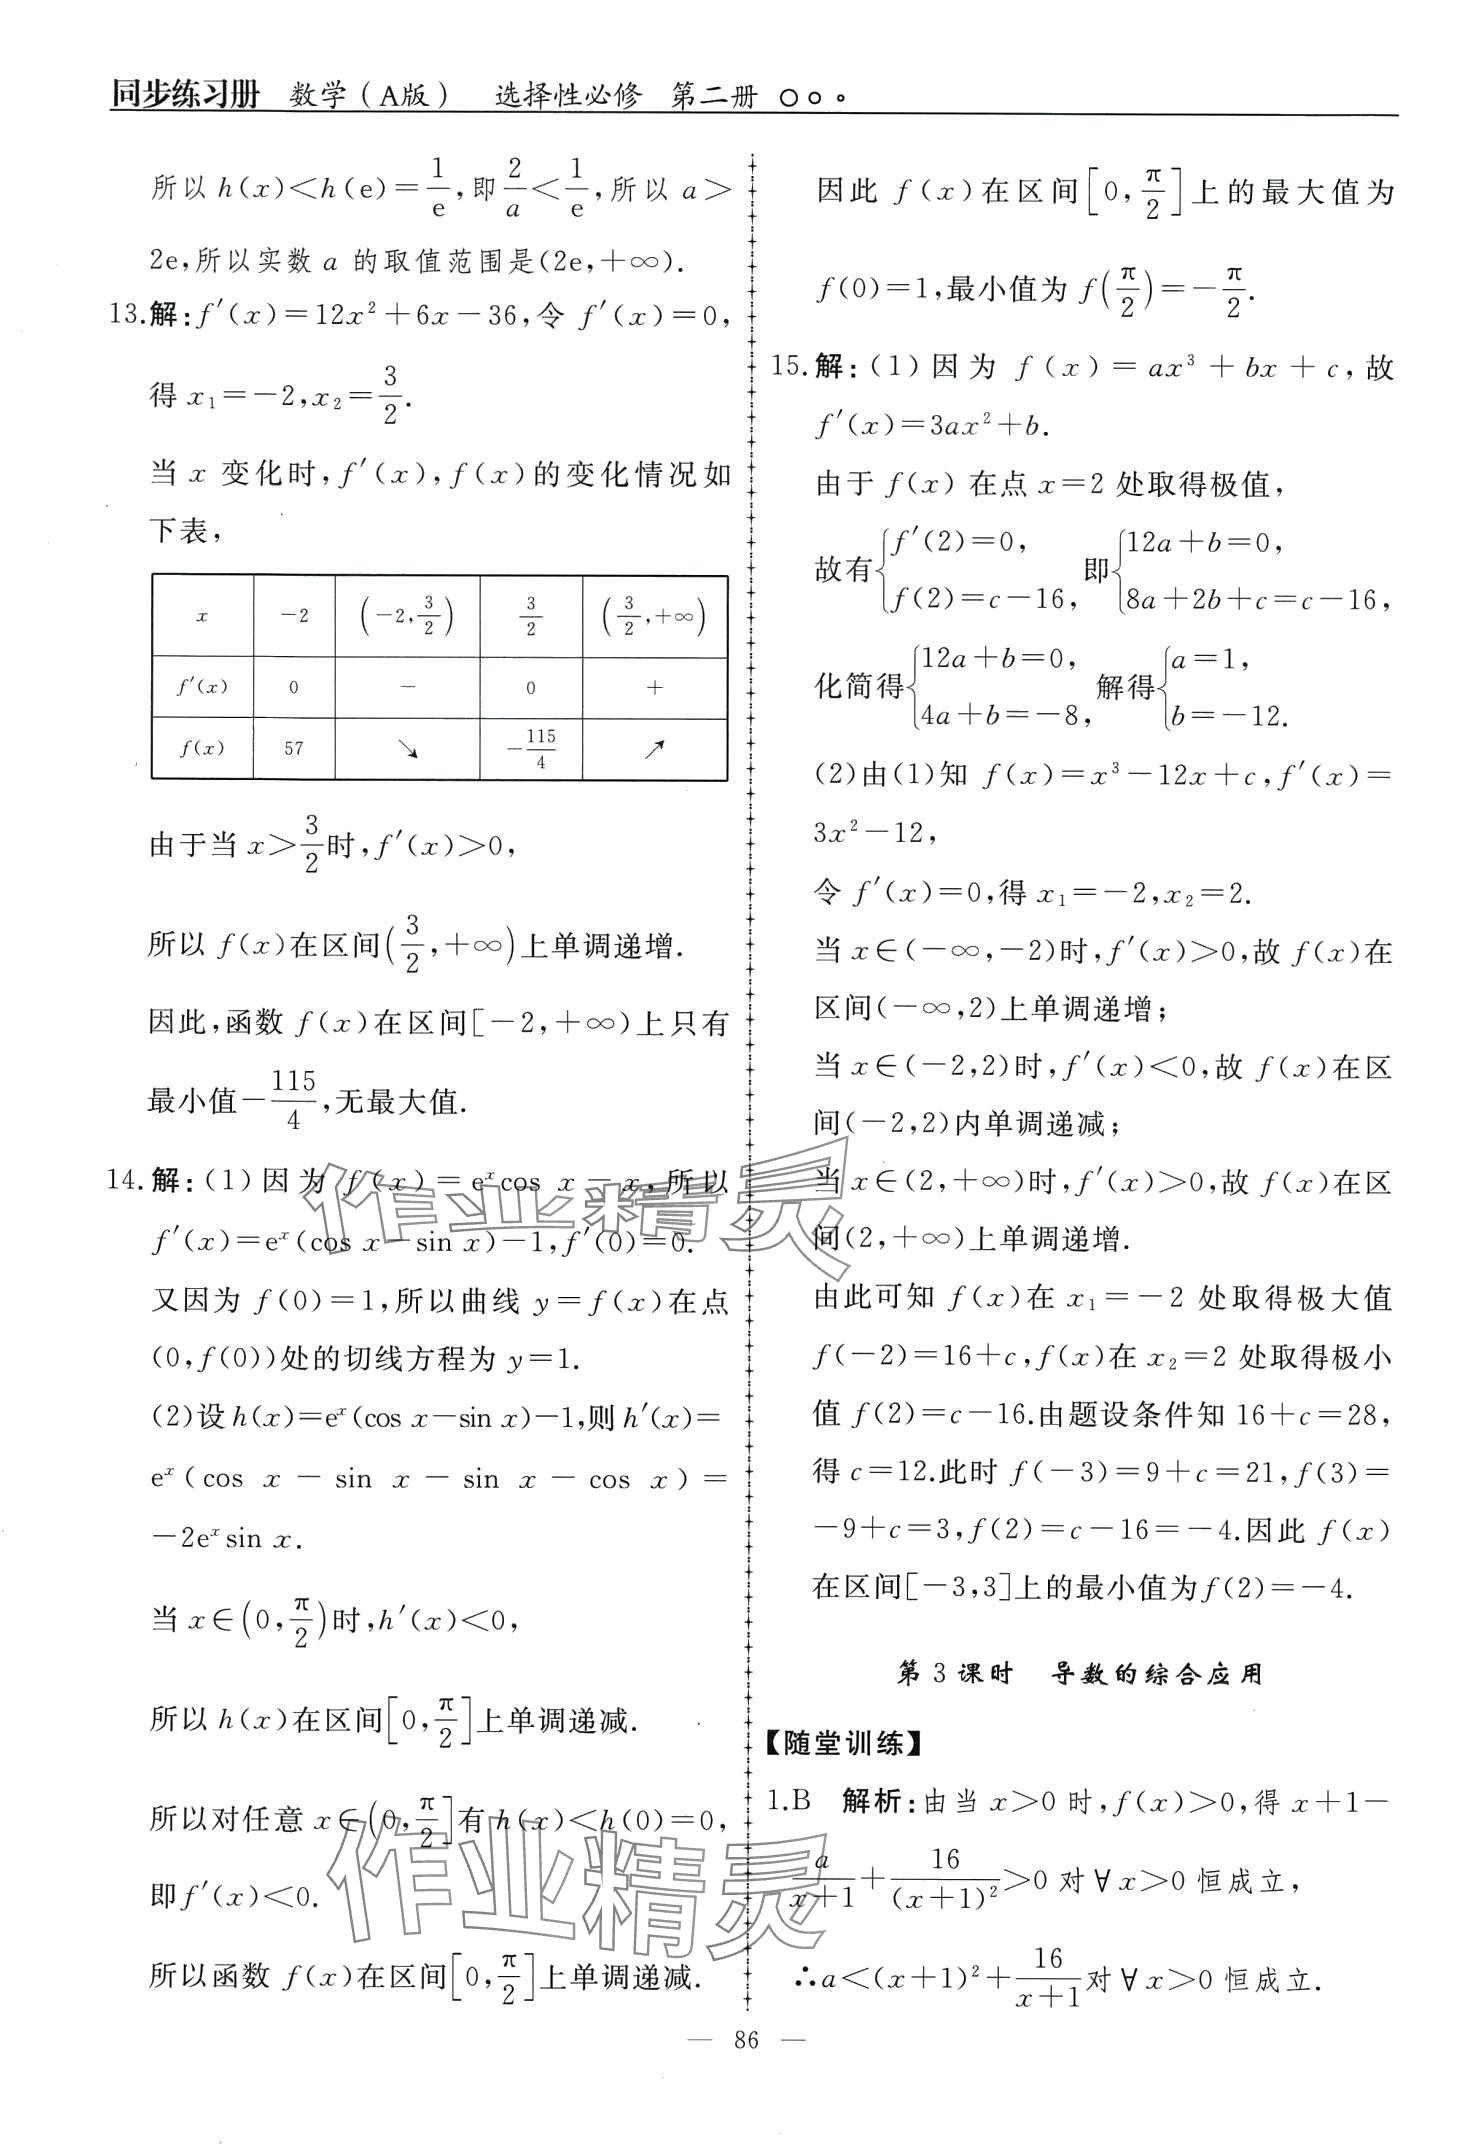 同步练习册 数学(A版) 选择性必修 第二册
所以 h(x)<h(e)=1/e,即2/a<1/e,所以 a>
2e,所以实数 a 的取值范围是(2e,+∞).
13.解:f′(x)=12x²+6x-36,令 f′(x)=0,
得 x₁=-2,x₂=3/2.
当 x 变化时,f′(x),f(x)的变化情况如
下表,
x -2 (-2,3/2) 3/2 (3/2,+∞)
f′(x) 0 - 0 +
f(x) 57 ↘ -115/4 ↗
由于当 x>3/2时,f′(x)>0,
所以 f(x)在区间(3/2,+∞)上单调递增.
因此,函数 f(x)在区间[-2,+∞)上只有
最小值-115/4,无最大值.
14.解:(1)因为 f(x)=eˣcos x-x,所以
f′(x)=eˣ(cos x-sin x)-1,f′(0)=0.
又因为 f(0)=1,所以曲线 y=f(x)在点
(0,f(0))处的切线方程为 y=1.
(2)设 h(x)=eˣ(cos x-sin x)-1,则 h′(x)=
eˣ(cos x-sin x-sin x-cos x)=
-2eˣsin x.
当 x∈(0,π/2)时,h′(x)<0,
所以 h(x)在区间[0,π/2]上单调递减.
所以对任意 x∈(0,π/2]有 h(x)<h(0)=0,
即 f′(x)<0.
所以函数 f(x)在区间[0,π/2]上单调递减.
因此 f(x)在区间[0,π/2]上的最大值为
f(0)=1,最小值为 f(π/2)=-π/2.
15.解:(1)因为 f(x)=ax³+bx+c,故
f′(x)=3ax²+b.
由于 f(x)在点 x=2 处取得极值,
故有{f′(2)=0, f(2)=c-16, 即{12a+b=0, 8a+2b+c=c-16,
化简得{12a+b=0, 4a+b=-8, 解得{a=1, b=-12.
(2)由(1)知 f(x)=x³-12x+c,f′(x)=
3x²-12,
令 f′(x)=0,得 x₁=-2,x₂=2.
当 x∈(-∞,-2)时,f′(x)>0,故 f(x)在
区间(-∞,2)上单调递增;
当 x∈(-2,2)时,f′(x)<0,故 f(x)在区
间(-2,2)内单调递减;
当 x∈(2,+∞)时,f′(x)>0,故 f(x)在区
间(2,+∞)上单调递增.
由此可知 f(x)在 x₁=-2 处取得极大值
f(-2)=16+c,f(x)在 x₂=2 处取得极小
值 f(2)=c-16.由题设条件知 16+c=28,
得 c=12.此时 f(-3)=9+c=21,f(3)=
-9+c=3,f(2)=c-16=-4.因此 f(x)
在区间[-3,3]上的最小值为f(2)=-4.
第 3 课时 导数的综合应用
【随堂训练】
1.B 解析:由当 x>0 时,f(x)>0,得 x+1-
a/(x+1)+16/(x+1)²>0 对 ∀ x>0 恒成立,
∴a<(x+1)²+16/(x+1)对 ∀ x>0 恒成立.
— 86 —
作业精灵
作业精灵